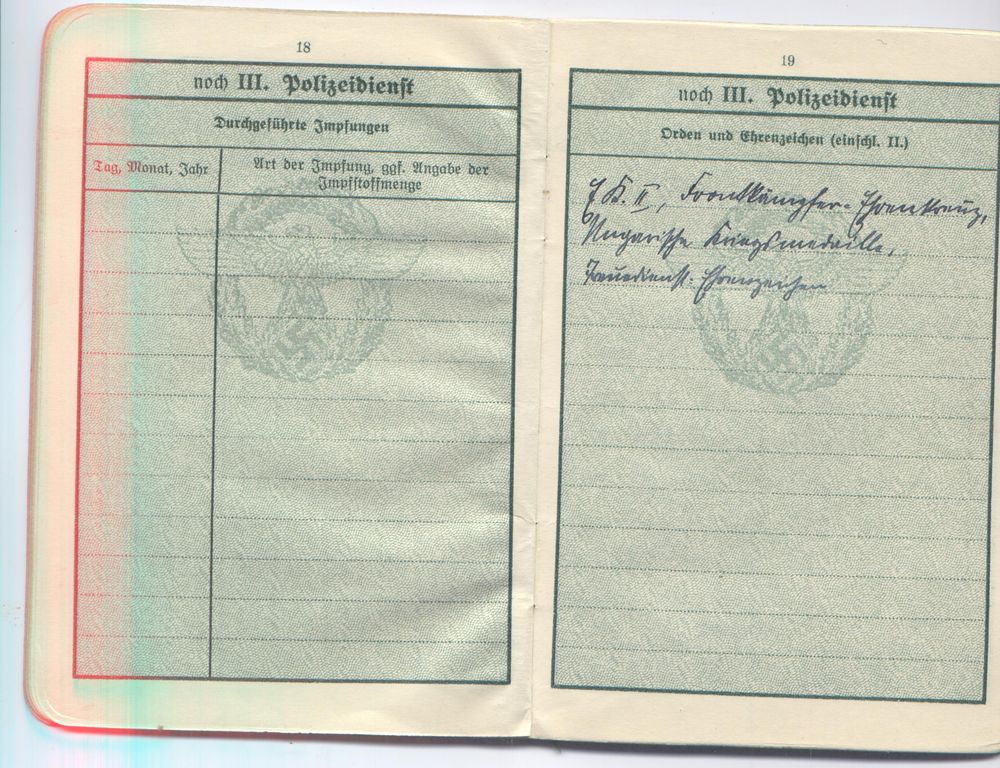 18
noch III. Polizeidienst
Durchgeführte Impfungen
Tag, Monat, Jahr
Art der Impfung, ggf. Angabe der
Impfstoffmenge
19
noch III. Polizeidienst
Orden und Ehrenzeichen (einschl. II.)
E. K. II, Frontkämpfer-Ehrenkreuz,
Ungarische Kriegsmedaille,
Treuedienst-Ehrenzeichen